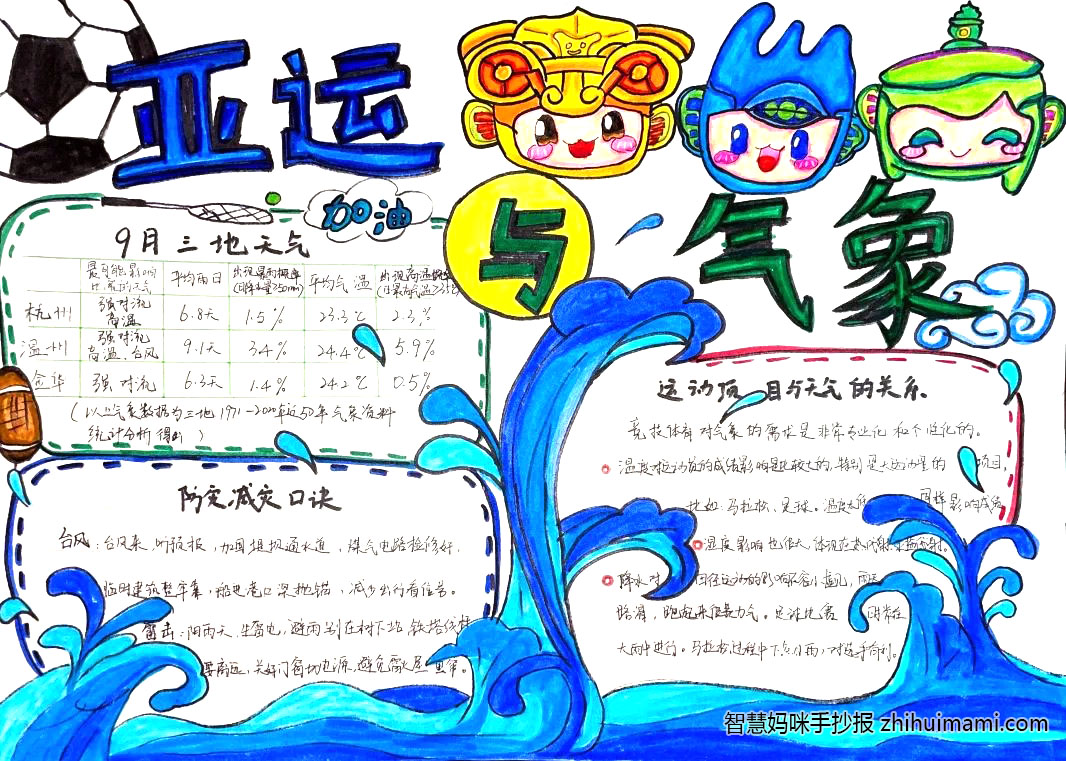 亚运
与
气象
加油
9月三地天气
最可能影响 平均雨日 出现暴雨概率 平均气温 出现高温概率
比赛的天气 (日降水量≥50mm) (日最高气温≥35℃)
杭州 强对流 高温 6.8天 1.5% 23.3℃ 2.3%
温州 强对流 高温、台风 9.1天 3.4% 24.4℃ 5.9%
金华 强对流 6.3天 1.4% 24.2℃ 0.5%
(以上气象数据为三地1971-2020年近50年气象资料
统计分析得出)
防灾减灾口诀
台风:台风来,听预报,加固堤坝通水道,煤气电路检修好,
临时建筑整牢靠,船进港口深抛锚,减少出行看信号。
雷击:阴雨天,生雷电,避雨别在树下站,铁塔线杆
要离远,关好门窗切电源,避免雷火屋里窜。
运动项目与天气的关系
竞技体育对气象的需求是非常专业化和个性化的。
温度对运动员的成绩影响是比较大的,特别是大运动量的项目,
比如:马拉松、足球。温度太 同样影响成绩
湿度影响也很大,体现在
降水对 田径运动的影响不容小觑,雨天
路滑,跑起来很是力气。足球比赛 通常在
大雨中进行。马拉松过程中下点小雨,对选手有利。
智慧妈咪手抄报 zhihuimami.com